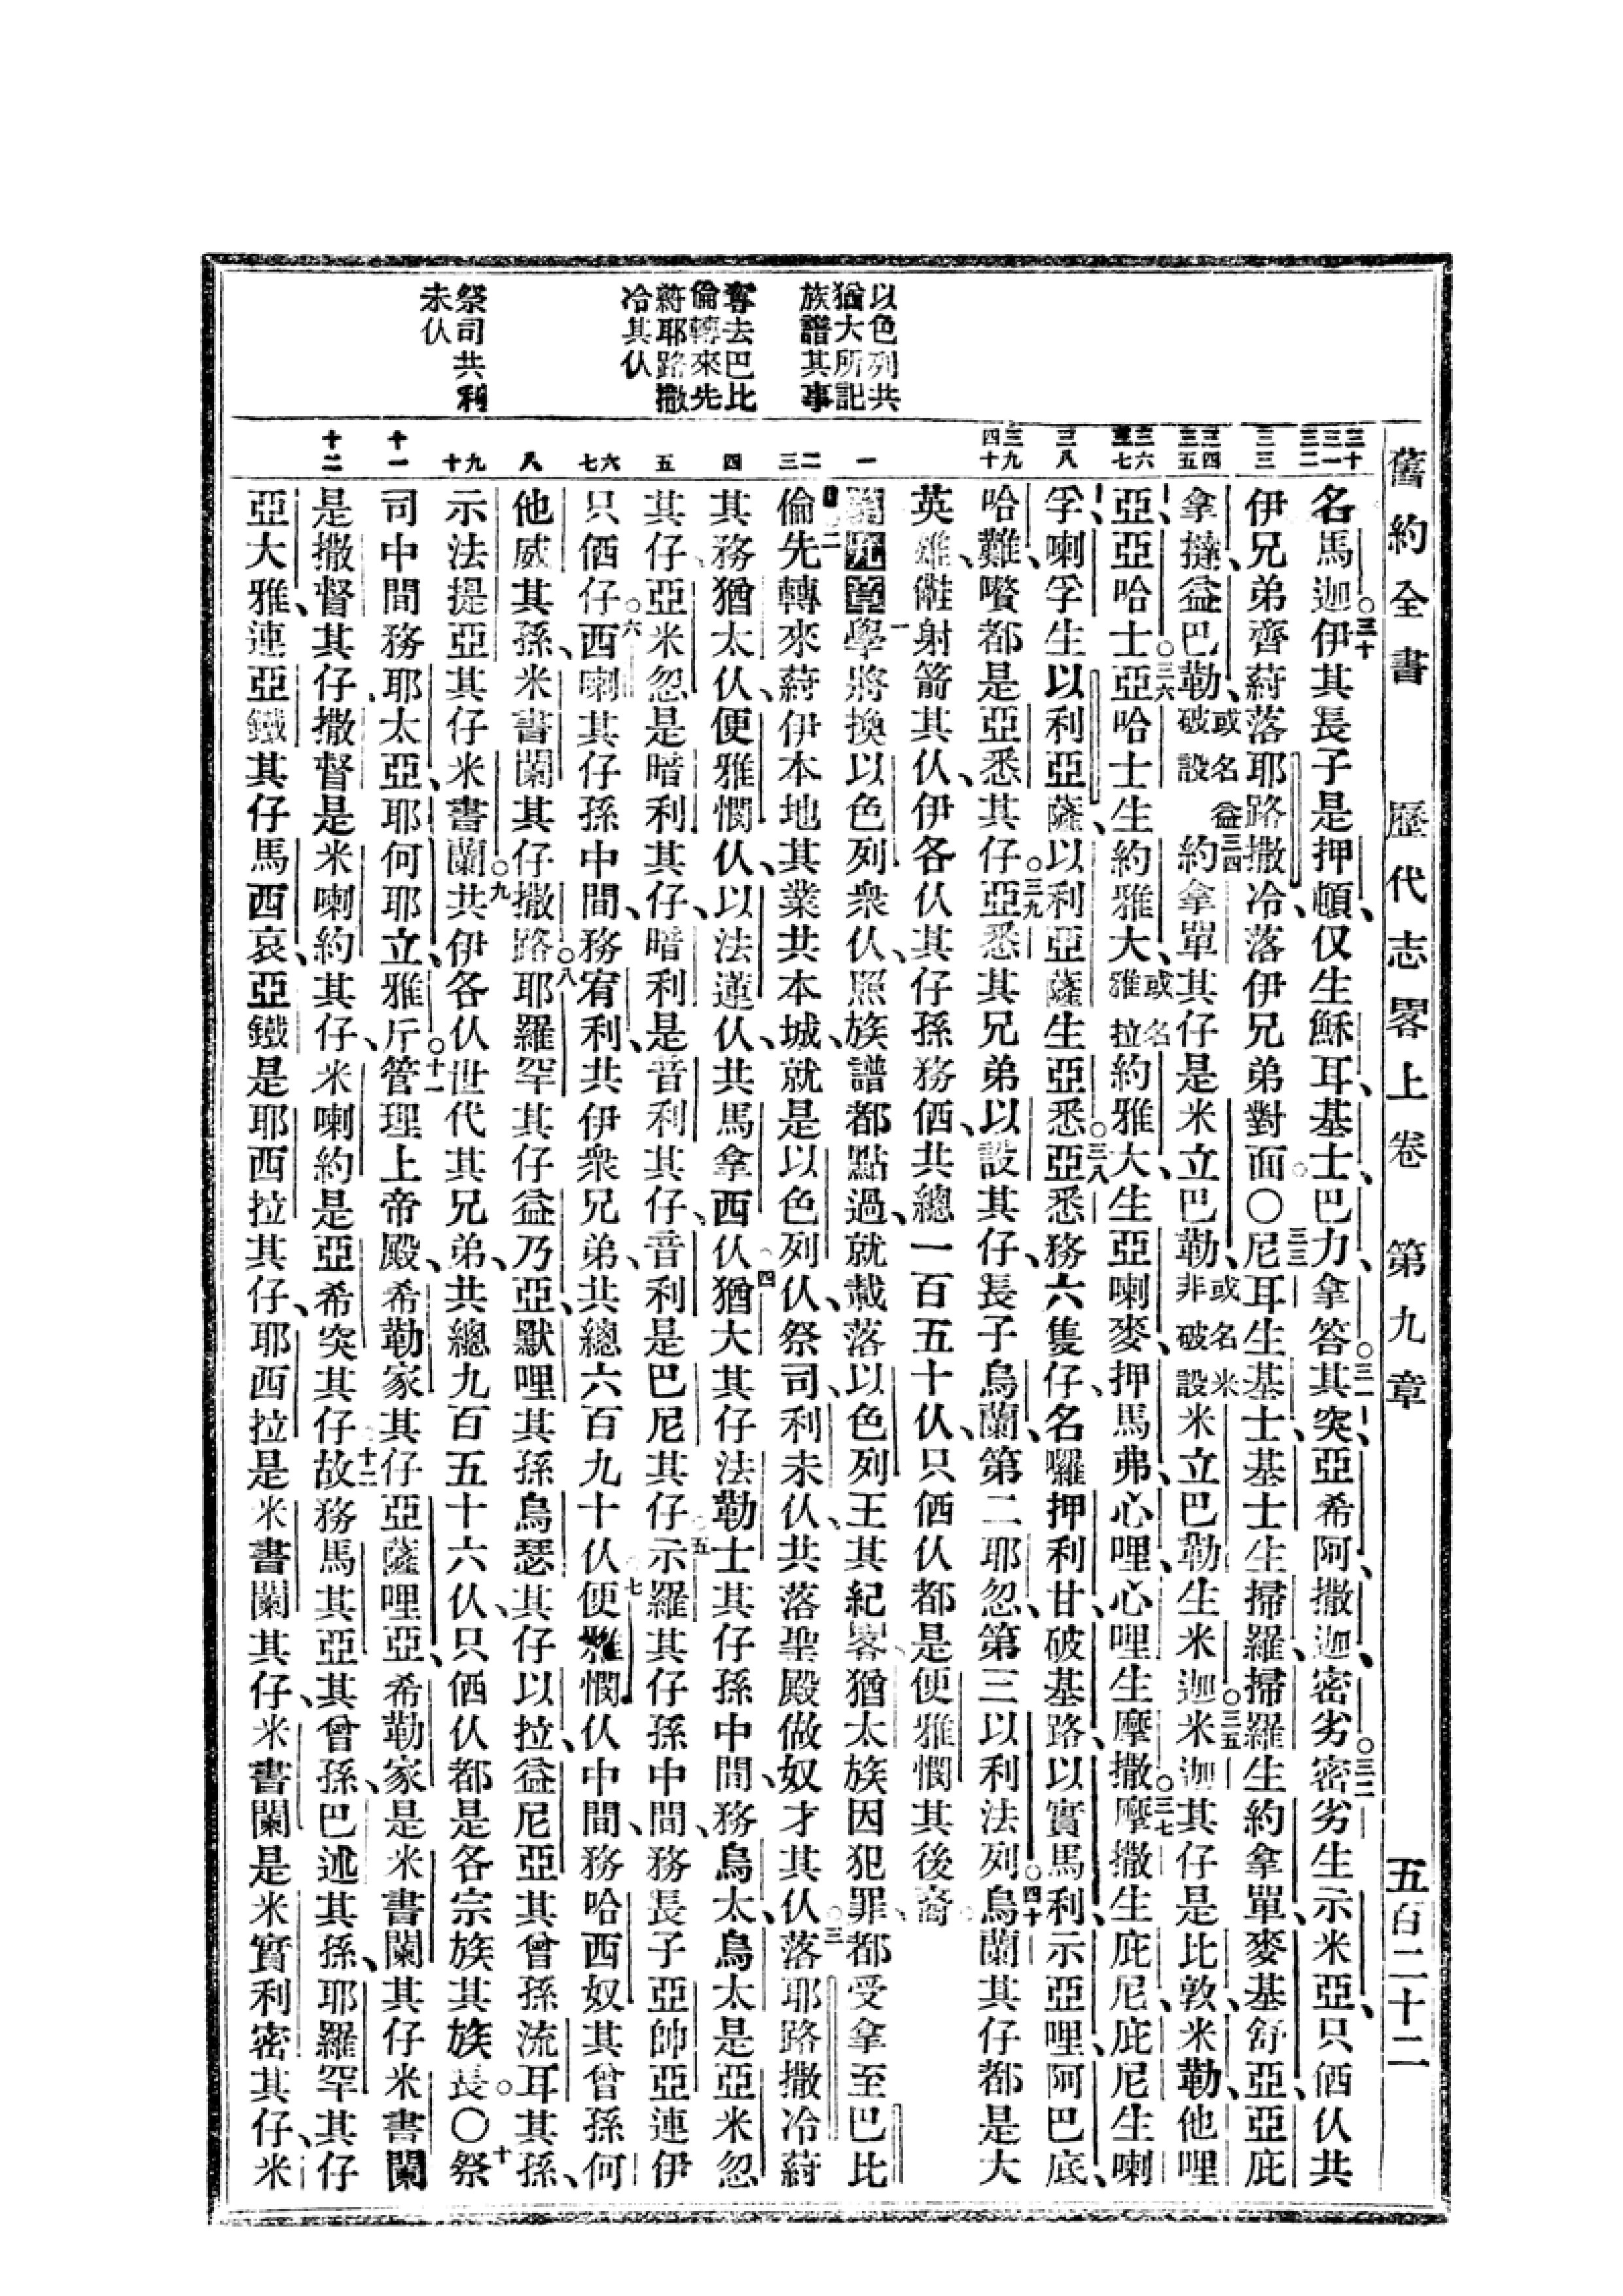 舊約全書 歷代志畧上卷 第九章 五百二十二
以色列共
猶大所記
族譜其事
奪去巴比
倫轉來先
蒔耶路撒
冷其仈
祭司共利
未仈
三十 三一 三二
三三
三四 三五
三六 三七
三八
三九 四十
一
二 三
四
五
六 七
八
九 十
十一
十二
名馬迦伊其長子是押頓、仅生穌耳、基士、巴力、拿答、其突、亞希阿、撒迦、密劣密劣生示米亞、只価仈共
伊兄弟齊蒔落耶路撒冷、落伊兄弟對面〇尼耳生基士、基士生掃羅、掃羅生約拿單、麥基舒亞、亞庇
拿撻、益巴勒、或名益破設約拿單其仔是米立巴勒、或名米非破設米立巴勒生米迦米迦其仔是比敦、米勒、他哩
亞、亞哈士亞哈士生約雅大、或名雅拉約雅大、生亞喇麥、押馬弗、心哩、心哩生摩撒、摩撒生庇尼、庇尼生喇
孚、喇孚生以利亞薩、以利亞薩生亞悉亞悉務六隻仔、名囉押利甘、破基路、以實馬利、示亞哩、阿巴底、
哈難、嘐都是亞悉其仔亞悉其兄弟以設其仔、長子烏蘭、第二耶忽、第三以利法列烏蘭其仔都是大
英雄、儺射箭其仈、伊各仈其仔孫務価、共總一百五十仈、只価仈都是便雅憫其後裔
第九章學將換以色列衆仈、照族譜都點過、就載落以色列王其紀畧、猶太族因犯罪、都受拿至巴比
倫先轉來蒔伊本地其業共本城、就是以色列仈、祭司、利未仈、共落聖殿做奴才其仈落耶路撒冷蒔
其務猶太仈、便雅憫仈、以法蓮仈、共馬拿西仈猶大其仔法勒士其仔孫中間、務烏太、烏太是亞米忽
其仔亞米忽是暗利其仔、暗利是音利其仔、音利是巴尼其仔示羅其仔孫中間、務長子亞帥亞連伊
只価仔西喇其仔孫中間、務宥利、共伊衆兄弟、共總六百九十仈便雅憫仈中間、務哈西奴其曾孫何
他威其孫、米書闌其仔撒路耶羅罕其仔益乃亞、默哩其孫烏瑟其仔以拉、益尼亞其曾孫流耳其孫、
示法提亞其仔米書蘭共伊各仈世代其兄弟、共總九百五十六仈、只価仈都是各宗族其族長〇祭
司中間務耶太亞、耶何耶立、雅斤管理上帝殿、希勒家其仔亞薩哩亞、希勒家是米書闌其仔米書闌
是撒督其仔、撒督是米喇約其仔、米喇約是亞希突其仔故務馬其亞其曾孫、巴述其孫、耶羅罕其仔
亞大雅、連亞鐵其仔馬西哀、亞鐵是耶西拉其仔、耶西拉是米書闌其仔、米書闌是米實利密其仔、米